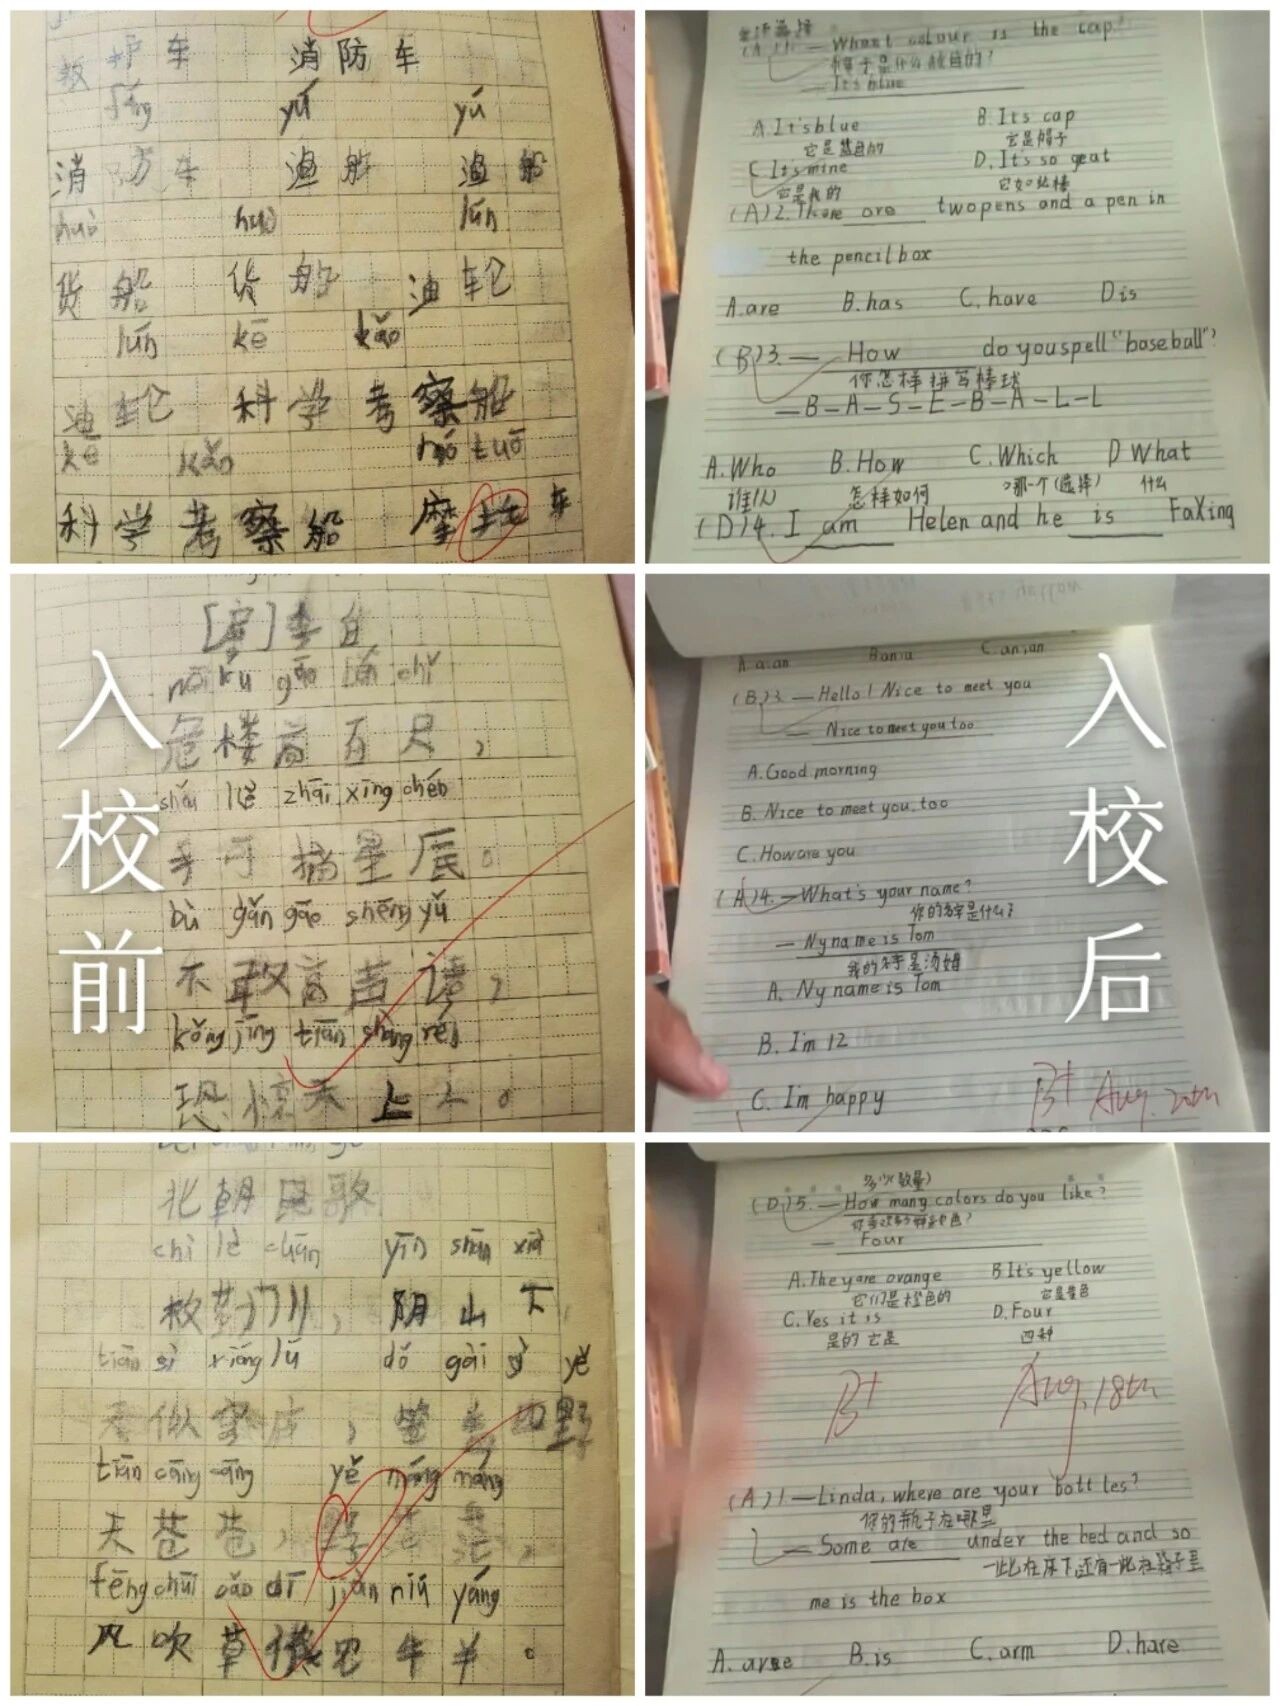 救护车 消防车
fáng yú yú
消防车 渔船 渔船
huò huò lún
货船 货船 油轮
lún kē kǎo
油轮 科学考察船
kē kǎo mó tuō
科学考察船 摩托车
What colour is the cap?
帽子是什么颜色的?
It's blue
A. It's blue B. Its cap
它是蓝色的 它是帽子
C. It's mine D. Its so geat
它是我的 它如此棒
(A)2. There are twopens and a pen in
the pencilbox
A.are B.has C.have D is
(B)3.— How do youspell "baseball"?
你怎样拼写棒球
—B—A—S—E—B—A—L—L
A.Who B.How C.Which D What
谁 怎样如何 哪一个(选择) 什么
(D)4. I am Helen and he is FaXing
入校前
[唐]李白
危楼高百尺,
shǒu kě zhāi xīng chén
手可摘星辰。
bù gǎn gāo shēng yǔ
不敢高声语,
kǒng jīng tiān shàng rén
恐惊天上人。
入校后
A. a.an B an.a C. an.an
(B)3.—Hello! Nice to meet you
— Nice to meet you too
A. Good morning
B. Nice to meet you, too
C. How are you
(A)4.—What's your name?
你的名字是什么?
— Ny name is Tom
我的名字是汤姆
A. Ny name is Tom
B. I'm 12
C. I'm happy
B+ Aug. 20th
北朝民歌
chì lè chuān yīn shān xià
敕勒川,阴山下
tiān sì yē
天似
tiān cāng cāng yě máng máng
天苍苍,野茫茫,
fēng chuī cǎo dī jiàn niú yáng
风吹草 见牛羊。
多少(数量)
(D)5.—How many colors do you like?
Four
A. They are orange B. It's yellow
它们是橙色的 它是黄色
C. Yes it is D. Four
是的 它是 四种
B+ Aug. 18th
(A)1.—Linda, where are your bottles?
你的瓶子在哪里
— Some are under the bed and so
一些在床下,还有一些在箱子里
me is the box
A. are B. is C. arm D. hare